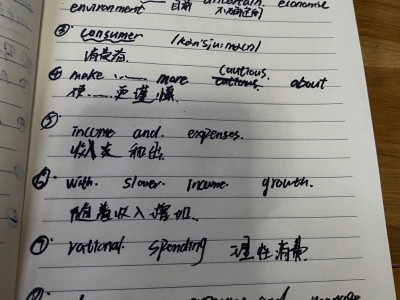 environment 目前 不确定的
uncertain economic
③ consumer /kənˈsjuːmə(r)/
消费者
④ make ...... more cautious about
使......更谨慎
⑤ income and expenses.
收入支 和出
⑥ with slower income growth.
随着收入增加.
⑦ rational spending 理性消费
⑧